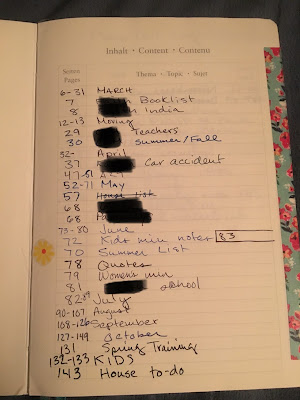 Inhalt • Content • Contenu
Seiten Thema • Topic • Sujet
Pages
6-31 MARCH
7 Booklist
8 India
12-13 Moving
29 Teachers
30 Summer/Fall
32- April
37 Car accident
47-51
52-71 May
57 House list
68
68
73-80 June
72 Kids min notes 83
70 Summer List
78 Quotes
79 Women's min
81 school
82 89 July
90-107 August
108-126 September
127-149 October
131 Spring Training
132-133 KIDS
143 House to-do